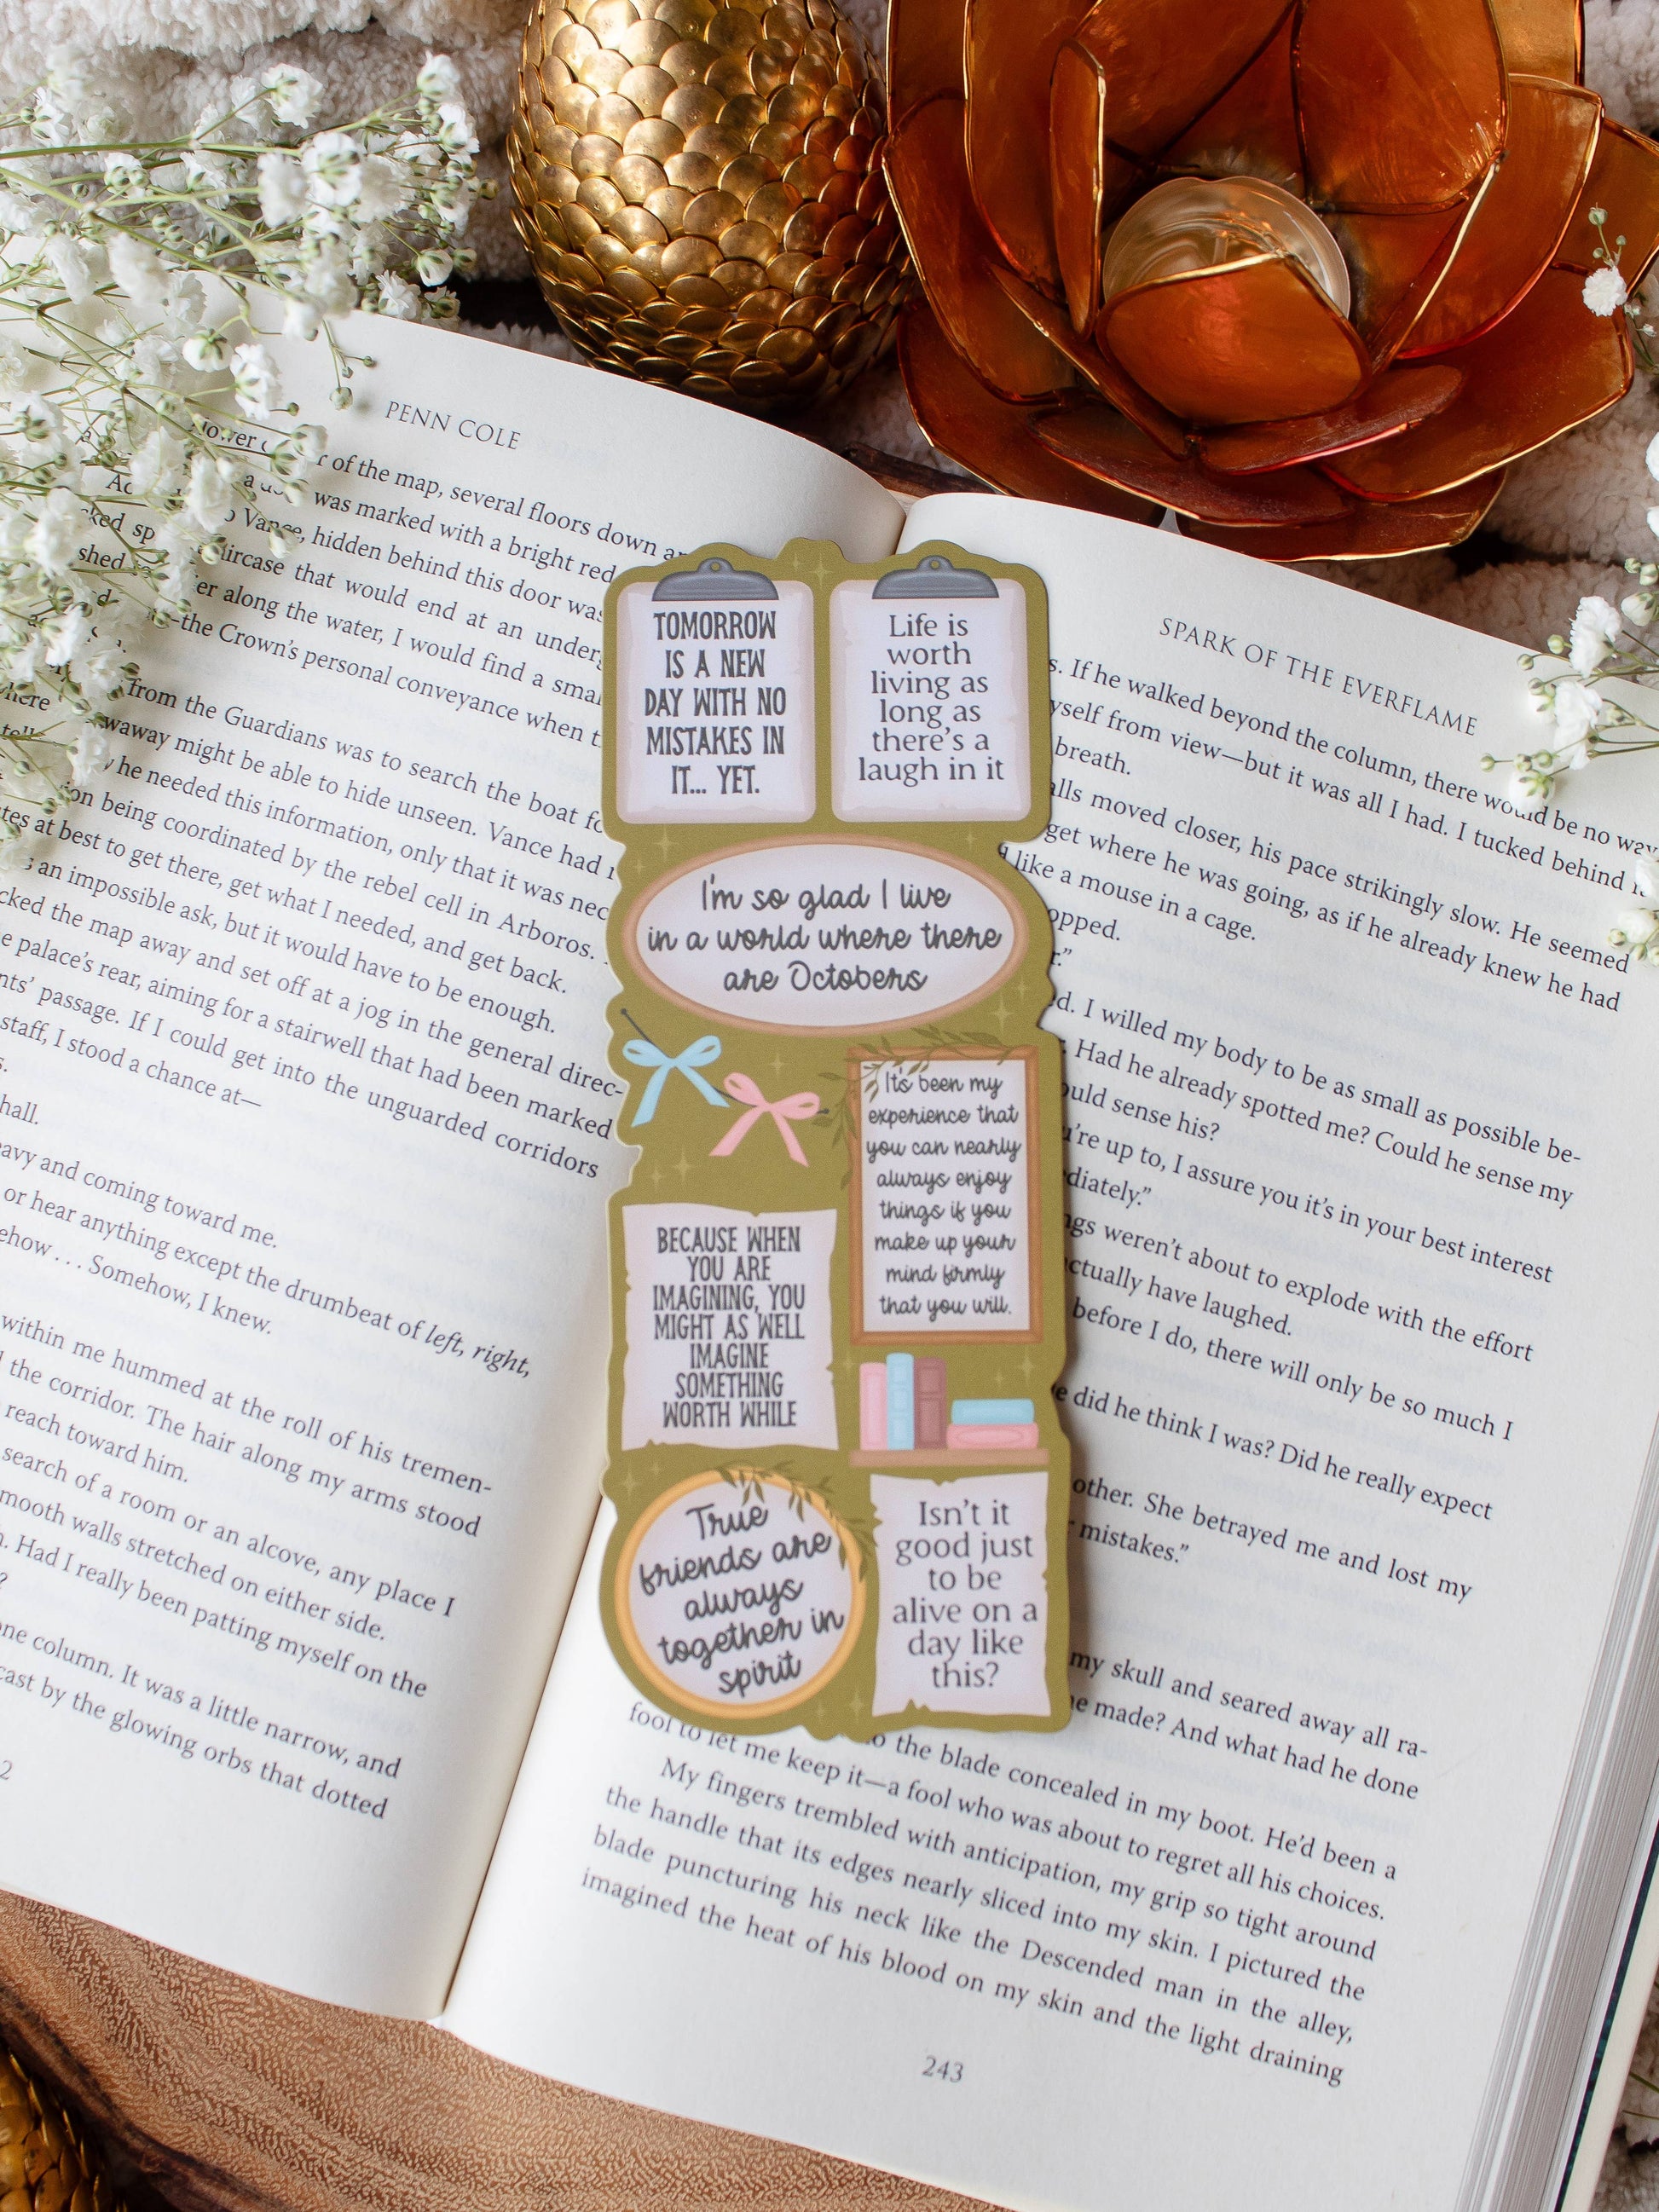 PENN COLE
of the map, several floors down
was marked with a bright red
Vance, hidden behind this door was
aircase that would end at an under
er along the water, I would find a smal
—the Crown's personal conveyance when
from the Guardians was to search the boat fo
waway might be able to hide unseen. Vance had
y he needed this information, only that it was nec
on being coordinated by the rebel cell in Arboros.
tes at best to get there, get what I needed, and get back.
an impossible ask, but it would have to be enough.
cked the map away and set off at a jog in the general direc-
e palace's rear, aiming for a stairwell that had been marked
nts' passage. If I could get into the unguarded corridors
staff, I stood a chance at—
hall.
eavy and coming toward me.
or hear anything except the drumbeat of left, right,
ehow . . . Somehow, I knew.
within me hummed at the roll of his tremen-
the corridor. The hair along my arms stood
reach toward him.
search of a room or an alcove, any place I
mooth walls stretched on either side.
. Had I really been patting myself on the
?
one column. It was a little narrow, and
cast by the glowing orbs that dotted
2
TOMORROW
IS A NEW
DAY WITH NO
MISTAKES IN
IT... YET.
Life is
worth
living as
long as
there's a
laugh in it
I'm so glad I live
in a world where there
are Octobers
It's been my
experience that
you can nearly
always enjoy
things if you
make up your
mind firmly
that you will.
BECAUSE WHEN
YOU ARE
IMAGINING, YOU
MIGHT AS WELL
IMAGINE
SOMETHING
WORTH WHILE
True
friends are
always
together in
spirit
Isn't it
good just
to be
alive on a
day like
this?
SPARK OF THE EVERFLAME
s. If he walked beyond the column, there would be no way
yself from view—but it was all I had. I tucked behind
breath.
alls moved closer, his pace strikingly slow. He seemed
get where he was going, as if he already knew he had
like a mouse in a cage.
opped.
r."
ed. I willed my body to be as small as possible be-
. Had he already spotted me? Could he sense my
ould sense his?
u're up to, I assure you it's in your best interest
diately."
ngs weren't about to explode with the effort
ctually have laughed.
before I do, there will only be so much I
e did he think I was? Did he really expect
other. She betrayed me and lost my
r mistakes."
my skull and seared away all ra-
he made? And what had he done
to the blade concealed in my boot. He'd been a
fool to let me keep it—a fool who was about to regret all his choices.
My fingers trembled with anticipation, my grip so tight around
the handle that its edges nearly sliced into my skin. I pictured the
blade puncturing his neck like the Descended man in the alley,
imagined the heat of his blood on my skin and the light draining
243